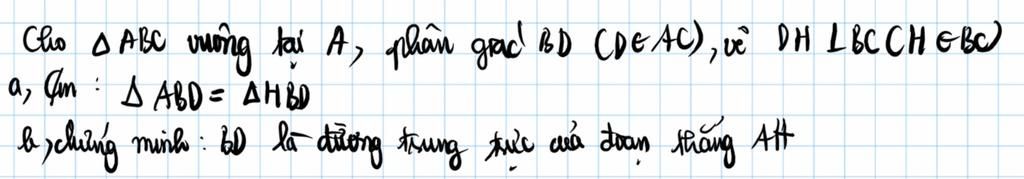 Cho Δ ABC vuông tại A, phân giác BD (D∈AC), vẽ DH ⊥ BC (H ∈ BC)
a, Cm : Δ ABD = Δ HBD
b, chứng minh : BD là đường trung trực của đoạn thẳng AH